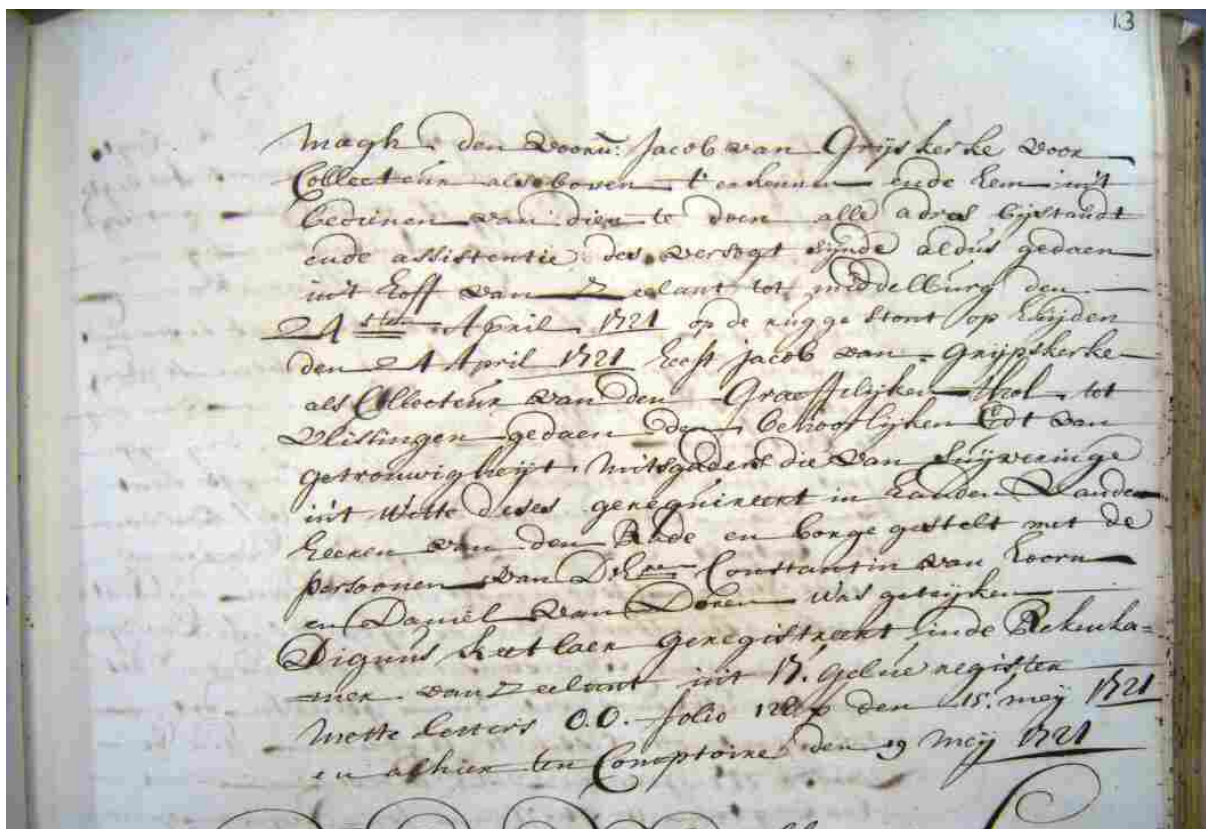 13
magh den voorn: Jacob van Grijskerke voor
Collecteur als boven t'erkennen ende hem in't
bedienen van dien te doen alle adres bijstandt
ende assistentie, des versogt sijnde aldus gedaen
in't hoff van Zeelant tot middelburg den
24 sten April 1721 op de rugge stont op huijden
den 24 April 1721 heeft jacob van Grijpskerke
als Collecteur van den Graeffelijken thol tot
vlissingen gedaen den behoorlijken Edt van
getrouwigheijt mitsgaders die van suijveringe
in't witte deses gerequireert in handen vande
heeren van den Rade en borge gestelt met de
persoonen van Constantin van hoorn
en Daniël van Doren was geteijken
geregistreert inde Rekenka=
mer van Zeelant int 17. gelüe register
mette letters O.O. folio den 15. meij 1721
en alhier ten Comptoire den 19 meij 1721